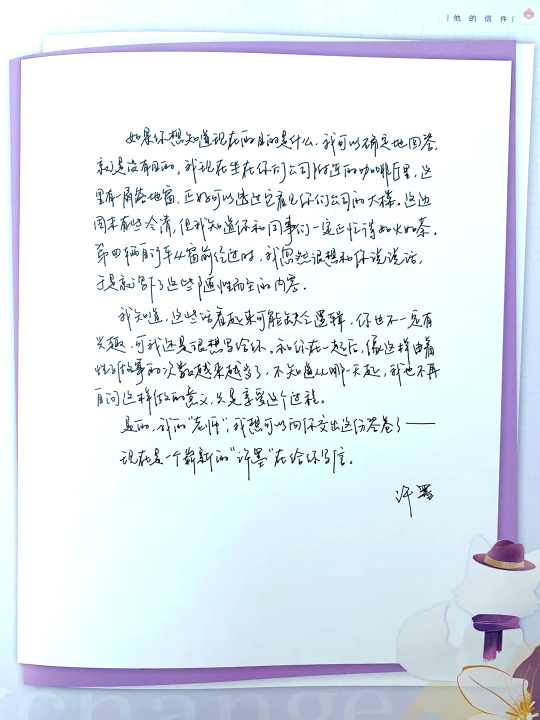 他的信件
如果你想知道现在的目的是什么，我可以确定地回答，
就是没有目的。我现在坐在你们公司附近的咖啡厅里，这
里有一扇落地窗，正好可以透过它看见你们公司的大楼。这边
周末有些冷清，但我知道你和同事们一定正忙得如火如荼。
第四辆自行车从窗前经过时，我忽然很想和你说说话，
于是就写下了这些随性而至的内容。
我知道，这些话看起来可能缺乏逻辑，你也不一定有
兴趣，可我还是很想写给你。和你在一起后，像这样由着
性子做事的次数越来越多了，不知道从哪一天起，我也不再
自问这样做的意义，只是享受这个过程。
是的，我的“老师”，我想可以向你交出这份答卷了——
现在是一个崭新的“许墨”在给你写信。
许墨
change